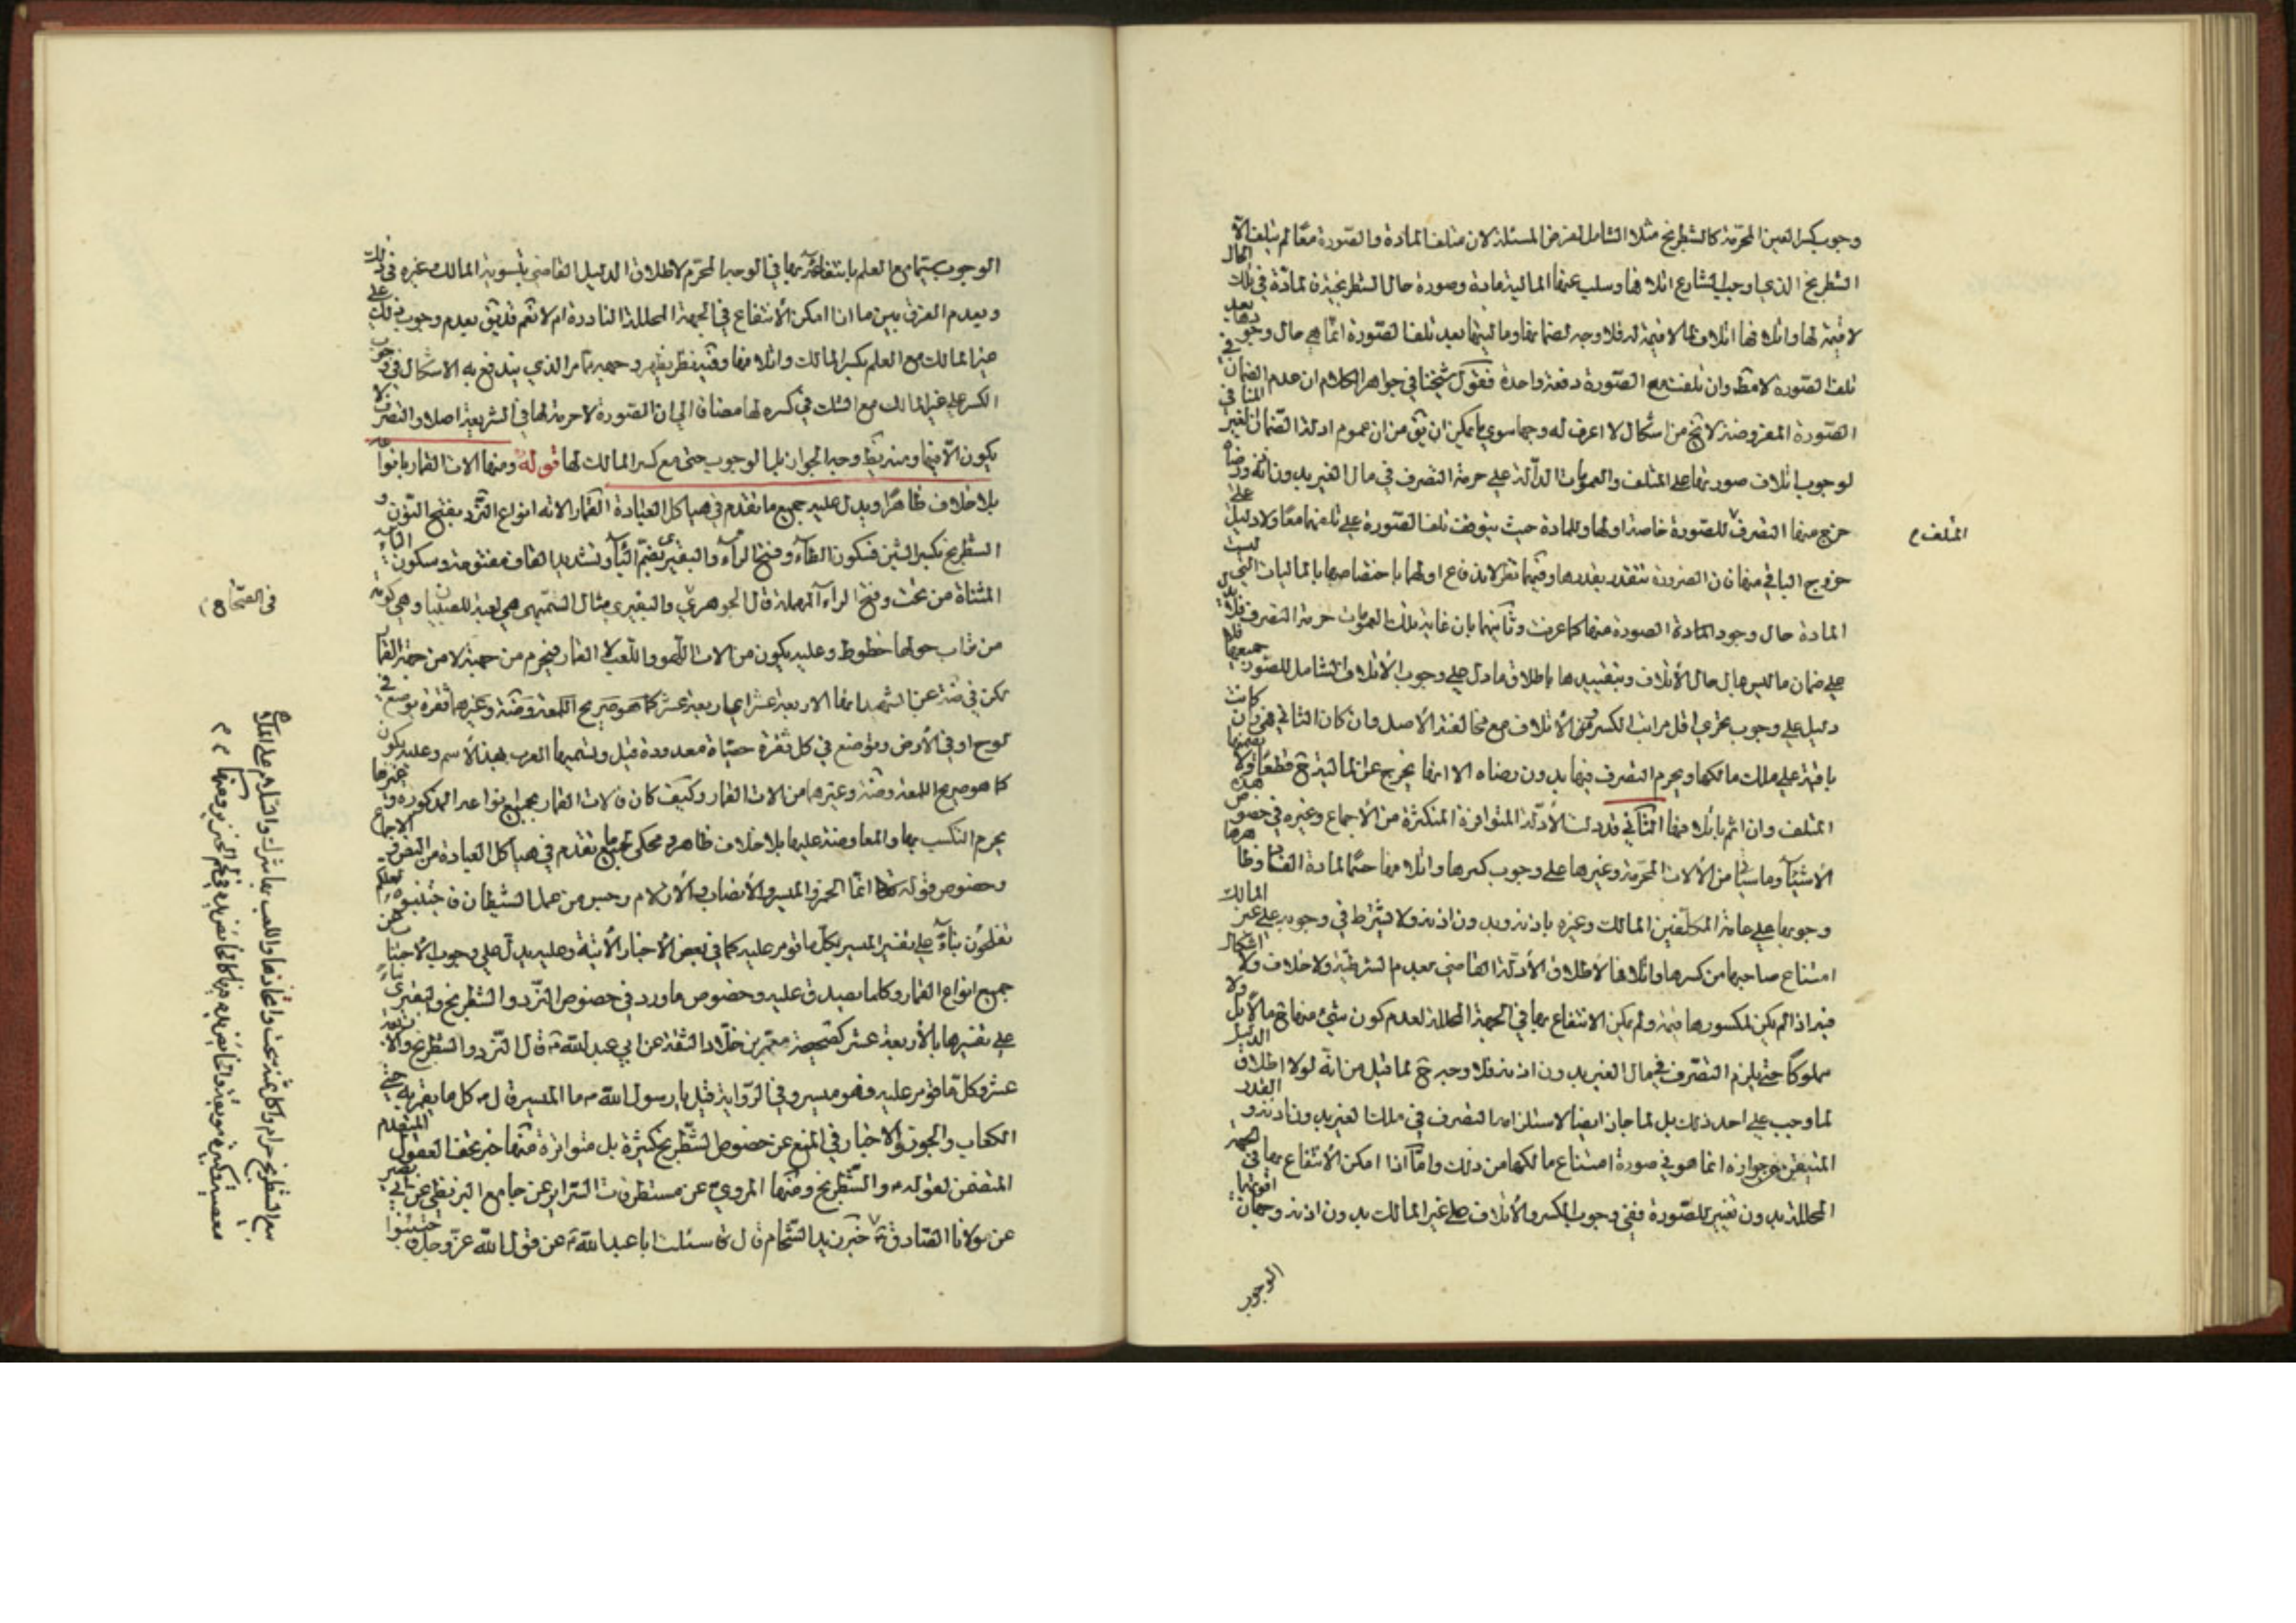 وجوب كسر العين المحرّمة كالشطرنج مثلا الشامل لفرض المسئلة لان متلف المادة والصورة معًا لم يتلف الّا
الشطرنج الذي اوجب الشارع اتلافها وسلب عنها المالية مادة وصورة حال الشطرنجية فالمادّة في تلك الحال
لا قيمة لها واتلافها اتلاف لما لا قيمة له فلا وجه لضمانها وماليتها بعد تلف الصورة انّما هي حال وجودها بعد
تلف الصورة لا مط وان تلفت مع الصورة دفعة واحدة فقول شيخنا في جواهر الكلام ان عدم الضمان في
الصورة المفروضة لا يخ من اشكال لا اعرف له وجها سوى ما يمكن ان يق من ان عموم ادلة الضمان المنافي لغير
لوجوب اتلاف صورتها على المتلف والعمومات الدالّة على حرمة التصرف في مال الغير بدون اذنه ورضاه
خرج منها التصرف للصورة خاصة اولها وللمادة حيث يتوقف تلف الصورة على تلفهما معًا ولا دليل على
خروج الباقي منها فان الضرورة تتقدر بقدرها وفيهما نظر لاندفاع اولهما باختصاصها بالماليات التي ليست
المادة حال وجود المادة الصورة منها كما عرفت وثانيهما بان غاية تلك العمومات حرمة التصرف فلا تدل
على ضمان ما ليس مال حال الأتلاف وبتقييدها باطلاق ما دل على وجوب الأتلاف الشامل للصور جميعها فلا
دليل على وجوب تحري اقل مراتب الكسر في الأتلاف مع مخالفته الأصل وان كان الثاني فهي وان كانت
باقية على ملك مالكها ويحرم التصرف فيها بدون رضاه الا انها يخرج عن المالية ح قطعًا ولا يضمنها
المتلف وان اثم باتلافها الثاني قد دلت الأدلّة المتوافرة المتكثرة من الأجماع وغيره في خصوص هذه
الأشيآء وما سيأتي من الألات المحرّمة وغيرها على وجوب كسرها واتلافها حتّى المادة الفقا وظاهرها
وجوبها على عامة المكلّفين المالك وغيره باذنه وبدون اذنه ولا يشترط في وجوبه على غير المالك
امتناع صاحبها من كسرها واتلافها لأطلاق الأدلّة القاضي بعدم الشرطيّة ولا خلاف ولا اشكال
فيه اذا لم يكن لمكسورها قيمة ولم يكن الانتفاع بها في الجهة المحللة لعدم كون شيء منها ح مالًا بل ولا
مملوكًا حتّى يلزم التصرّف في مال الغير بدون اذنه فلا وجه ح لما قيل من انّه لولا اطلاق الدليل
لما وجب على احد ذلك بل لما جاز ايضا لاستلزامه التصرف في ملك الغير بدون اذنه و القدر
المتيقن من جوازه انما هو في صورة امتناع مالكها من ذلك وامّا اذا امكن الأنتفاع بها في الجهة
المحللة بدون تغيير للصّورة ففي وجوب الكسر والأتلاف على غير المالك بدون اذنه وجهان اقويهما
الوجوب
المتلف م
الوجوب سيّما مع العلم بانتفاعه بها في الوجه المحرّم لاطلاق الدليل القاضي بتسوية المالك وغيره في ذلك
وبعدم الفرق بين ما اذا امكن الأنتفاع في الجهة المحللة النادرة ام لا نعم قد يق بعدم وجوب ذلك على
غير المالك مع العلم بكسر المالك واتلافها وفيه نظر يظهر وجهه مما مر الذي يندفع به الاشكال في وجوب
الكسر على غير المالك مع الشك في كسره لها مضافا الى ان الصورة لا حرمة لها في الشريعة اصلا والتصرف لا
يكون الّا فيها ومنه يظهر وجه الجواز بل الوجوب حتى مع كسر المالك لها قوله ومنها الات القمار بانواعه
بلا خلاف ظاهرًا ويدل عليه جميع ما تقدم في هياكل العبادة القمار الاته انواع النّرد بفتح النّون و
الشطرنج بكسر الشين فسكون الطّآء وفتح الرّآء والبقّيرى بضمّ البآء وتشديد القاف مفتوحة وسكون اليآء
المثنّاة من تحت وفتح الراء المهملة قال الجوهريّ والبقيرى مثال السّميهى هي لعبة للصبيان وهي كومة
من تراب حولها خطوط وعليه يكون من الات اللّهو واللّعب لا القمار فيحرم من جهته لا من جهة القمار
لكن في ضة عن الشهيد انها الاربعة عشر اي اربعة عشر كما هو صريح اللمعة وضة وغيرهما نقرة توضع في
لوح او في الأرض ويوضع في كل نقرة حصاة معدودة قيل ويسميها العرب بهذا الأسم وعليه يكون
كما هو صريح اللمعة وضة وغيرها من الات القمار وكيف كان فالات القمار بجميع انواعه المذكورة وغيرها
يحرم التكسب بها والمعاوضة عليها بلا خلاف ظاهر ومحكي لجميع ما تقدم في هياكل العبادة من النص والاجماع
وخصوص قوله تعالى انّما الخمر والميسر والأنصاب والأزلام رجس من عمل الشيطان فاجتنبوه لعلّكم
تفلحون بناءً على تفسير الميسر بكلّ ما قومر عليه كما في بعض الأخبار الأتية وعليه يدلّ على وجوب الأجتناب عن
جميع انواع القمار وكلما يصدق عليه وخصوص ما ورد في خصوص النّرد والشطرنج والبقيرى بناءً
على تفسيرها بالأربعة عشر كصحيحة معمّر بن خلّاد الثقة عن ابي عبد الله ع قال النّرد والشطرنج والأربعة
عشر وكلّ ما قومر عليه فهو ميسر وفي الرّواية قيل يا رسول الله ص ما الميسر قال ص كل ما يقمر به حتى
الكعاب والجوز والاخبار في المنع عن خصوص الشّطرنج كثيرة بل متواترة منها خبر تحف العقول المتقدم
المتضمن لقوله ع والشّطرنج ومنها المرويّ عن مستطرفات السّراير عن جامع البزنطي عن ابي بصير
عن مولانا الصّادق ع خبر زيد الشّحام قال قال سئلت ابا عبد الله ع عن قول الله عزّ وجلّ فاجتنبوا
في الصّحاح
بيع الشطرنج حرام واكل ثمنه سحت واتخاذها واللعب بها شرك والسلام على اللاهي
معصية وكبيرة موبقة والخائض يده فيها كالخائض يده في لحم الخنزير ومنها م